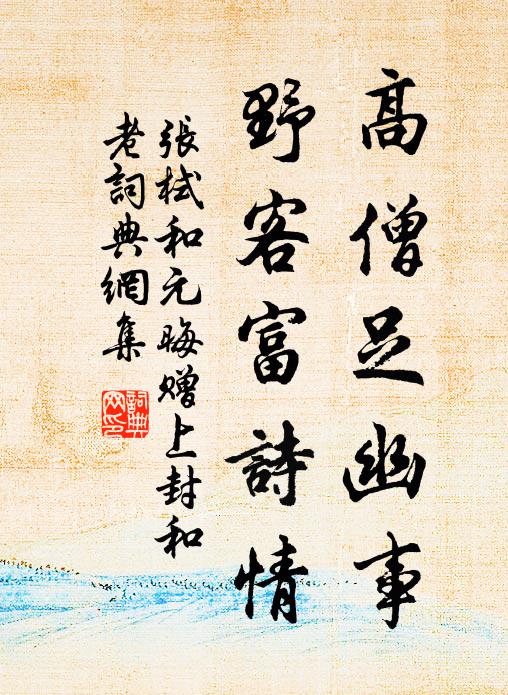 高僧足幽事
野客富詩情
張栻和元晦贈上封和
老詞典網集
詞典
网印